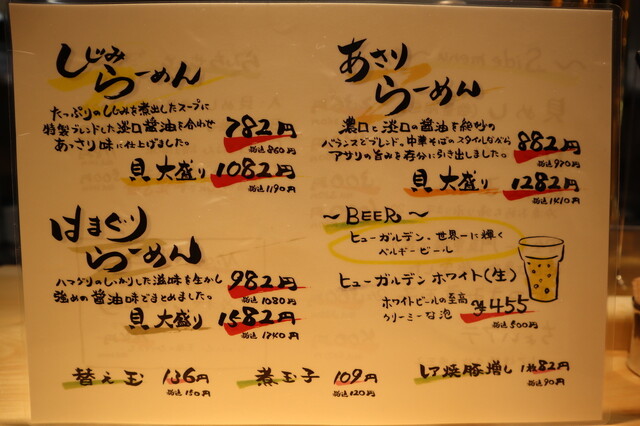 しじみ
らーめん
たっぷりのしじみを煮出したスープに
特製ブレンドした淡口醤油を合わせ
あっさり味に仕上げました。
782円
税込860円
貝大盛り 1082円
税込1190円
はまぐり
らーめん
ハマグリのしっかりした滋味を生かし
強めの醤油味でまとめました。
982円
税込1080円
貝大盛り 1582円
税込1740円
あさり
らーめん
濃口と淡口の醤油を絶妙の
バランスでブレンド。中華そばのスタイルながら
アサリの旨みを存分に引き出しました。
882円
税込970円
貝大盛り 1282円
税込1410円
〜BEER〜
ヒューガルデン、世界一に輝く
ベルギービール
ヒューガルデンホワイト(生)
ホワイトビールの至高
クリーミーな泡
455
税込500円
替え玉 136円
税込150円
煮玉子 109円
税込120円
レア焼豚増し 1枚82円
税込90円